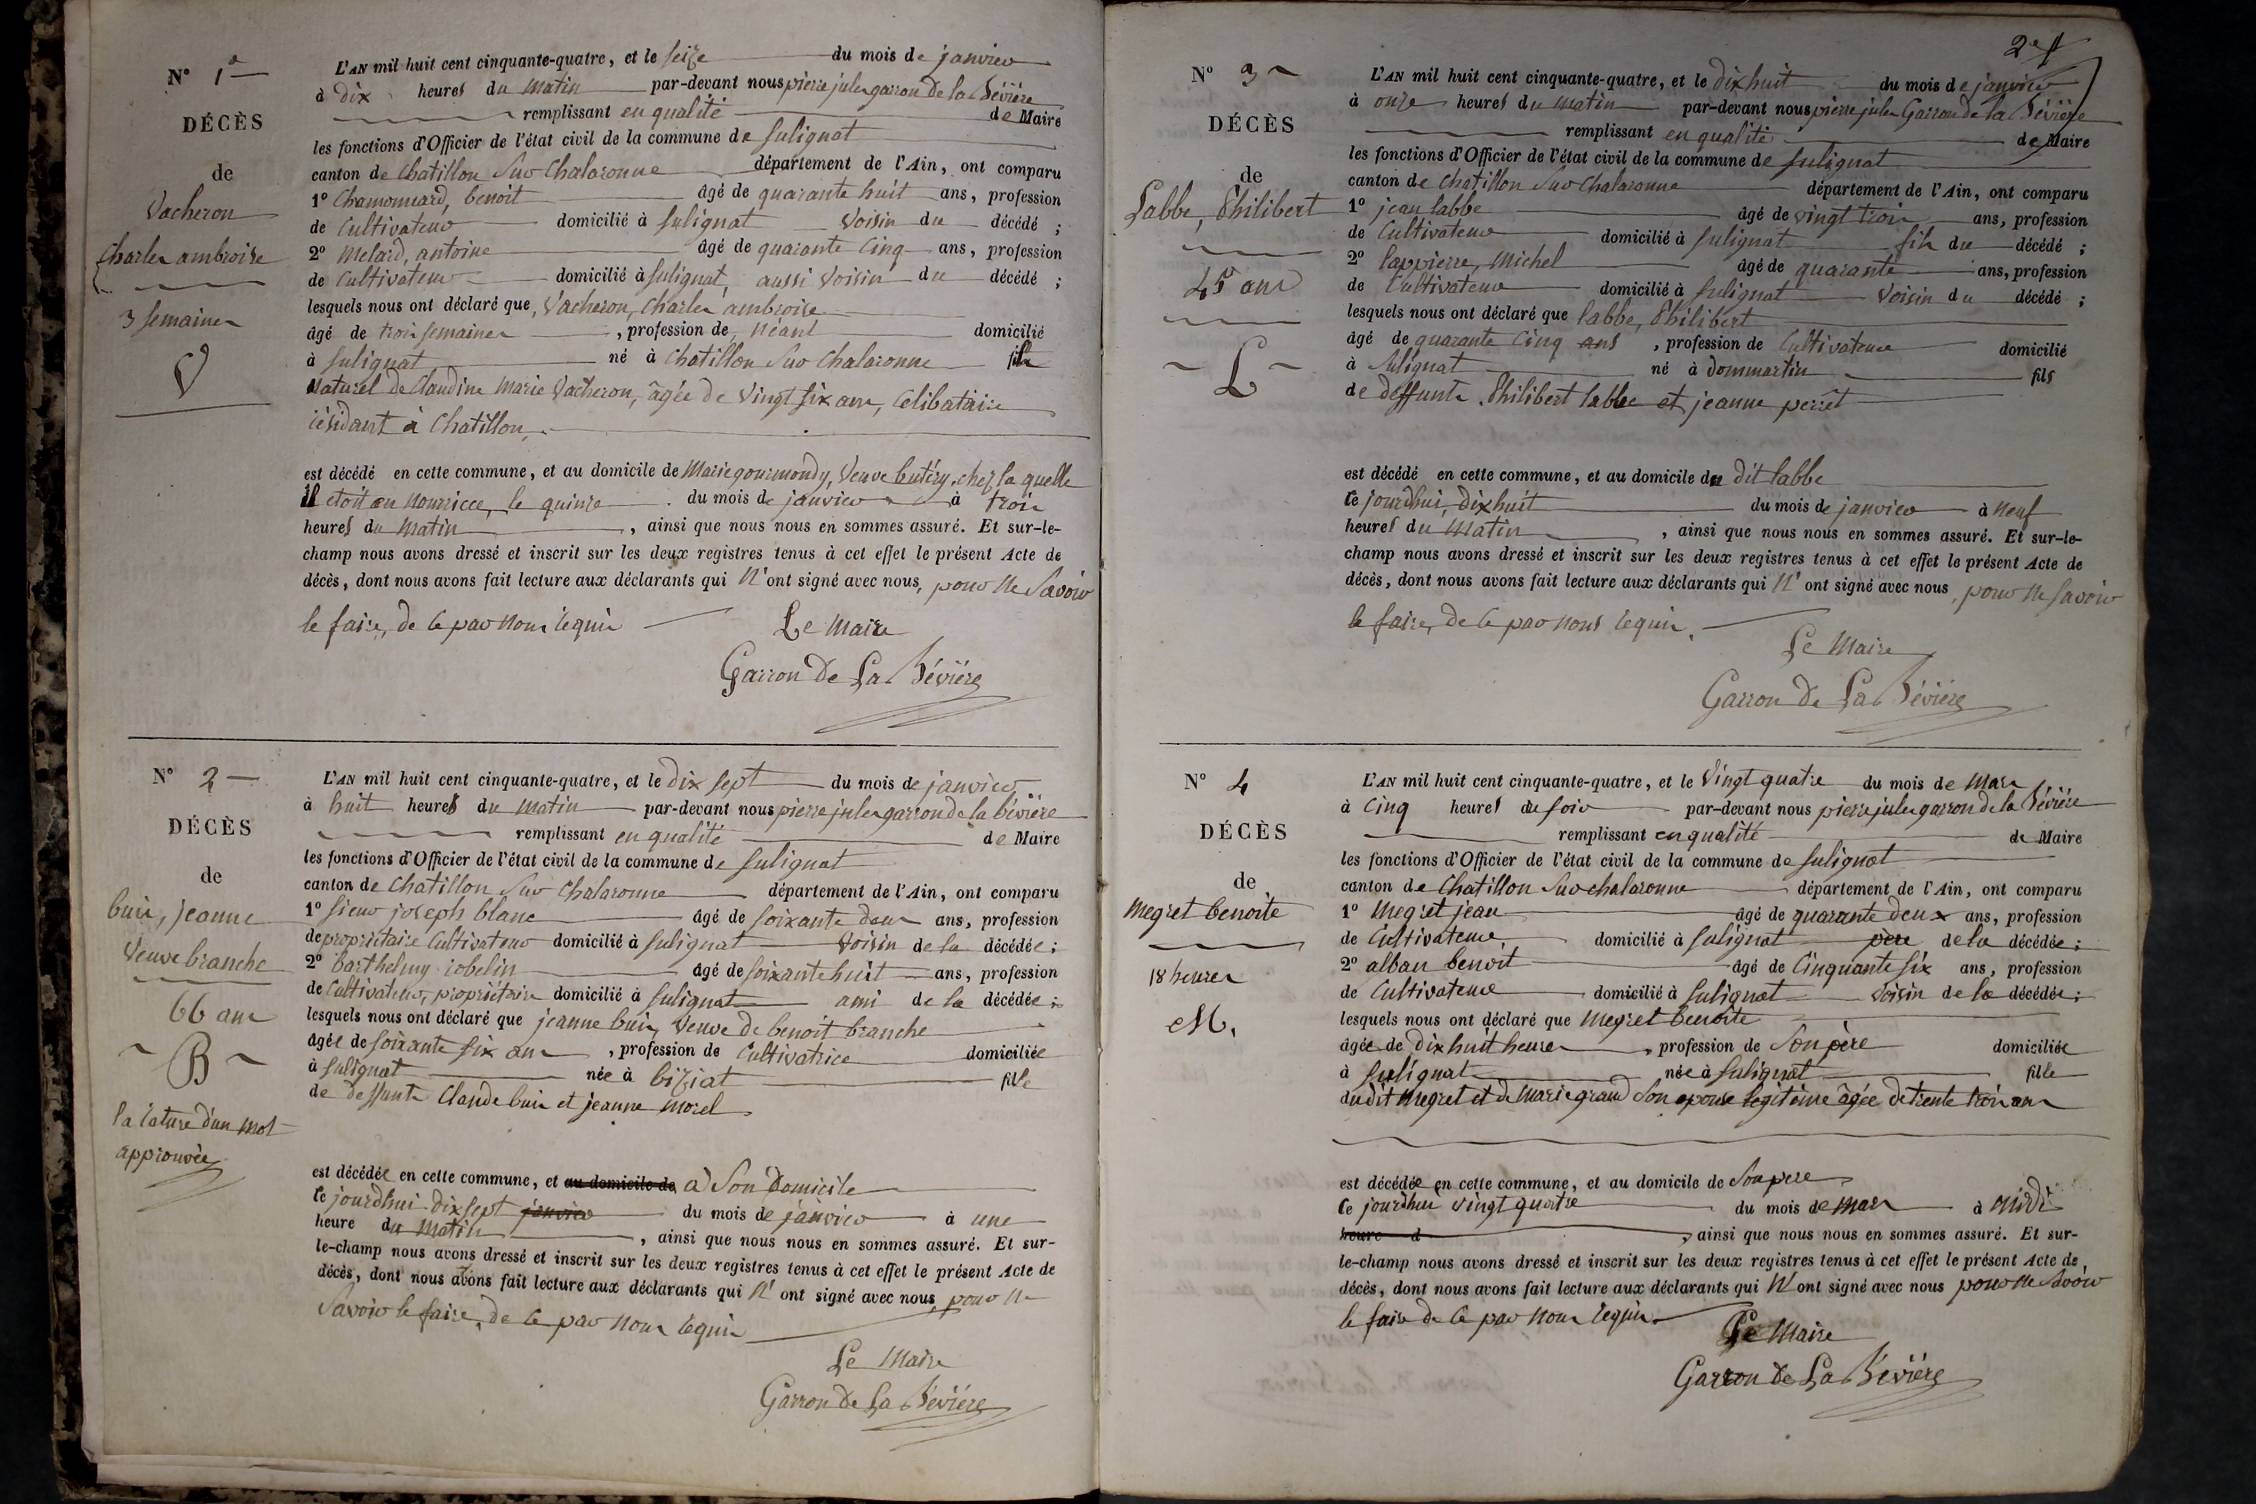 N° 1er
DÉCÈS
de
Vacheron
Charles ambroise
3 semaines
V
L'AN mil huit cent cinquante-quatre, et le seize du mois de janvier
à dix heures du matin par-devant nous pierre jules garron de la Bévière
remplissant en qualité de Maire
les fonctions d'Officier de l'état civil de la commune de Sulignat
canton de Chatillon Sur Chalaronne département de l'Ain, ont comparu
1° Chamonnard, benoit âgé de quarante huit ans, profession
de Cultivateur domicilié à Sulignat Voisin du décédé ;
2° Melard, antoine âgé de quarante Cinq ans, profession
de Cultivateur domicilié à Sulignat, aussi Voisin du décédé ;
lesquels nous ont déclaré que, Vacheron, Charles ambroise
âgé de trois semaines , profession de, Néant domicilié
à Sulignat né à Chatillon Sur Chalaronne fils
Naturel de Claudine Marie Vacheron, âgée de Vingt six ans, Célibataire
résidant à Chatillon,
est décédé en cette commune, et au domicile de Marie gourmondy, Veuve butéry, chez la quelle
il etoit en Nourrice, le quinze du mois de janvier à trois
heures du Matin , ainsi que nous nous en sommes assuré. Et sur-le-
champ nous avons dressé et inscrit sur les deux registres tenus à cet effet le présent Acte de
décès, dont nous avons fait lecture aux déclarants qui N'ont signé avec nous, pour Ne Savoir
le faire, de ce par Nous requis
Le Maire
Garron De La Bévière
N° 2
DÉCÈS
de
buis, jeanne
Veuve branche
66 ans
B
la rature d'un mot
approuvée
L'AN mil huit cent cinquante-quatre, et le dix sept du mois de janvier
à huit heures du matin par-devant nous pierre jules garron de la bévière
remplissant en qualité de Maire
les fonctions d'Officier de l'état civil de la commune de Sulignat
canton de Chatillon Sur Chalaronne département de l'Ain, ont comparu
1° Sieur joseph blanc âgé de soixante deux ans, profession
de propriétaire Cultivateur domicilié à Sulignat Voisin de la décédée ;
2° barthelmy robelin âgé de soixante huit ans, profession
de Cultivateur, propriétaire domicilié à Sulignat ami de la décédée ;
lesquels nous ont déclaré que jeanne buis, Veuve de benoit branche
âgée de soixante six ans , profession de Cultivatrice domiciliée
à Sulignat née à biziat fille
de deffunts Claude buis et jeanne morel
est décédée en cette commune, et au domicile de à Son Domicile
ce jourd'hui dix sept janvier du mois de janvier à une
heure du Matin , ainsi que nous nous en sommes assuré. Et sur-
le-champ nous avons dressé et inscrit sur les deux registres tenus à cet effet le présent Acte de
décès, dont nous avons fait lecture aux déclarants qui N'ont signé avec nous, pour Ne
Savoir le faire, de ce par Nous requis
Le Maire
Garron De La Bévière
N° 3
DÉCÈS
de
Labbe, Philibert
45 ans
L
L'AN mil huit cent cinquante-quatre, et le dix huit du mois de janvier
à onze heures du matin par-devant nous pierre jules Garron de la Bévière
remplissant en qualité de Maire
les fonctions d'Officier de l'état civil de la commune de Sulignat
canton de Chatillon Sur Chalaronne département de l'Ain, ont comparu
1° jean labbe âgé de vingt trois ans, profession
de Cultivateur domicilié à Sulignat fils du décédé ;
2° lappierre, Michel âgé de quarante ans, profession
de Cultivateur domicilié à Sulignat Voisin du décédé ;
lesquels nous ont déclaré que labbe, Philibert
âgé de quarante Cinq ans , profession de Cultivateur domicilié
à Sulignat né à dommartin fils
de deffunts Philibert labbe et jeanne perret
est décédé en cette commune, et au domicile du dit labbe
ce jourdhui, dix huit du mois de janvier à neuf
heures du Matin , ainsi que nous nous en sommes assuré. Et sur-le-
champ nous avons dressé et inscrit sur les deux registres tenus à cet effet le présent Acte de
décès, dont nous avons fait lecture aux déclarants qui N'ont signé avec nous, pour Ne Savoir
le faire, de ce par Nous requis.
Le Maire
Garron De La Bévière
N° 4
DÉCÈS
de
Megret benoite
18 heures
M.
L'AN mil huit cent cinquante-quatre, et le Vingt quatre du mois de Mars
à Cinq heures du soir par-devant nous pierre jules garron de la Bévière
remplissant en qualité de Maire
les fonctions d'Officier de l'état civil de la commune de Sulignat
canton de Chatillon Sur chalaronne département de l'Ain, ont comparu
1° Megret jean âgé de quarante deux ans, profession
de Cultivateur domicilié à Sulignat père de la décédée ;
2° alban benoit âgé de Cinquante six ans, profession
de Cultivateur domicilié à Sulignat Voisin de la décédée ;
lesquels nous ont déclaré que Megret benoite
âgée de dix huit heures , profession de Son père domiciliée
à Sulignat née à Sulignat fille
dudit Megret et de Marie grand Son epouse légitime âgée de trente trois ans
est décédée en cette commune, et au domicile de Son pere
ce jourdhui Vingt quatre du mois de Mars à Midi
heure d , ainsi que nous nous en sommes assuré. Et sur-
le-champ nous avons dressé et inscrit sur les deux registres tenus à cet effet le présent Acte de
décès, dont nous avons fait lecture aux déclarants qui N'ont signé avec nous pour Ne Savoir
le faire de ce par Nous requis.
Le Maire
Garron De La Bévière